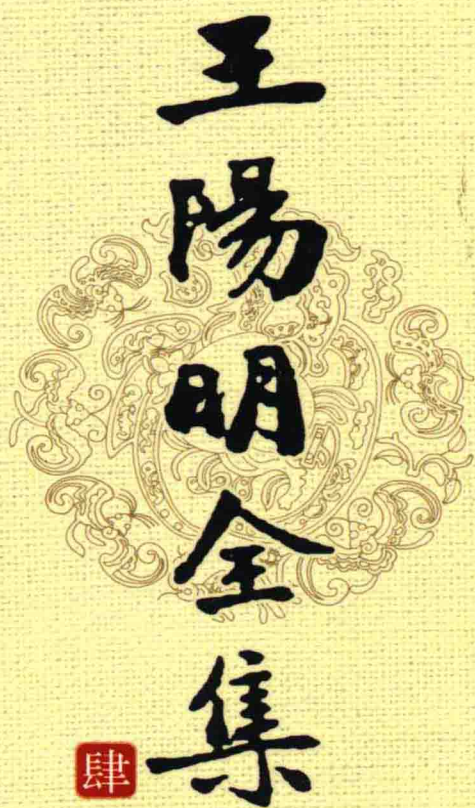 王陽明全集
肆